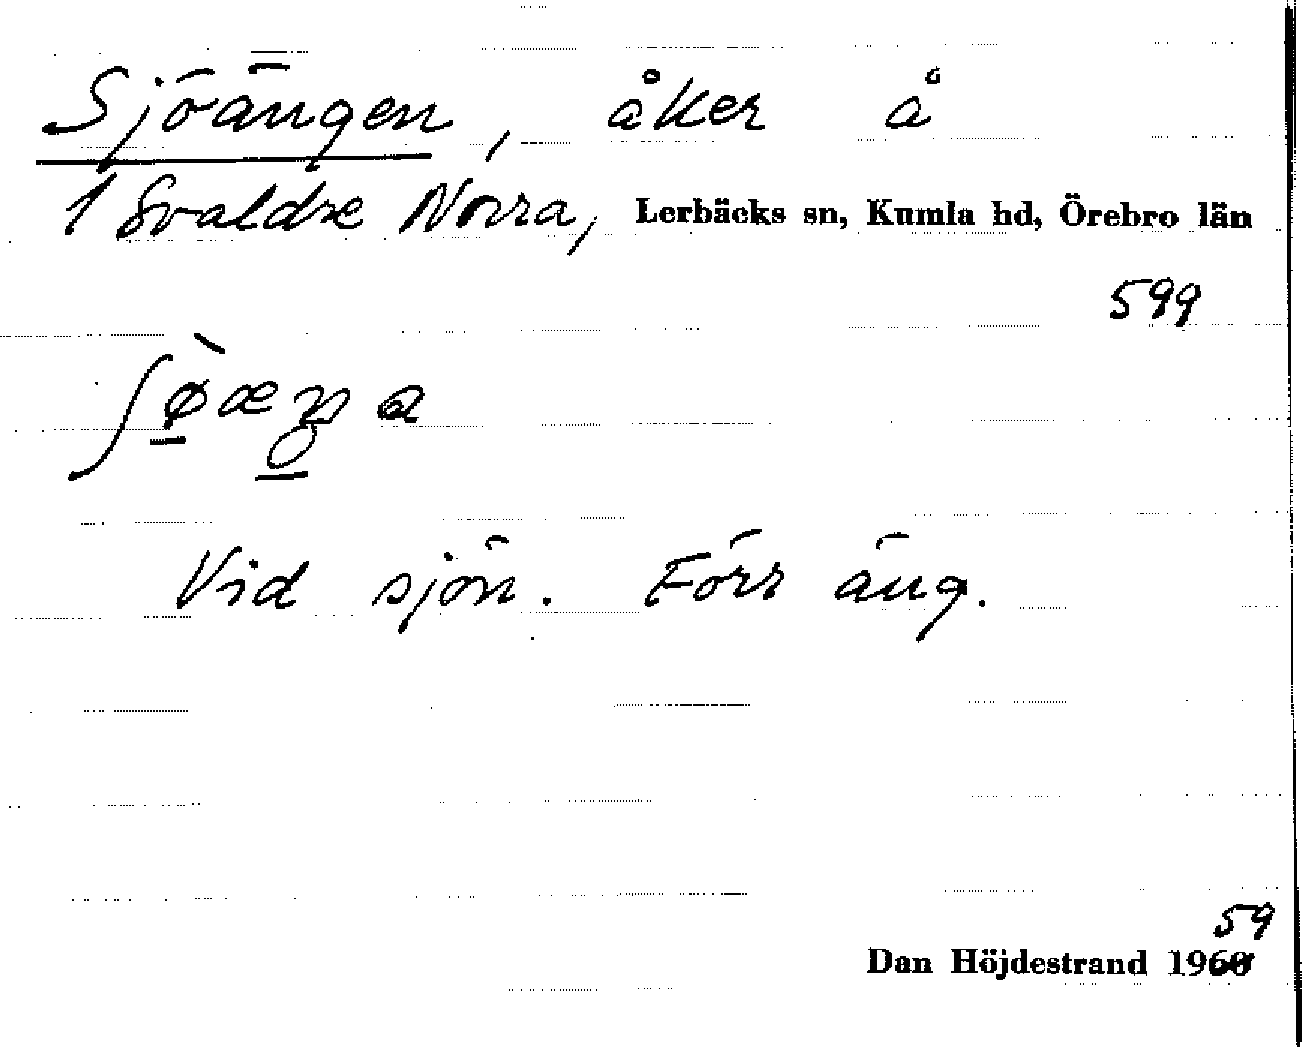 Sjöängen, åker å
1 Svaldre Norra, Lerbäcks sn, Kumla hd, Örebro län
599
Vid sjön. Förr äng.
59
Dan Höjdestrand 1960